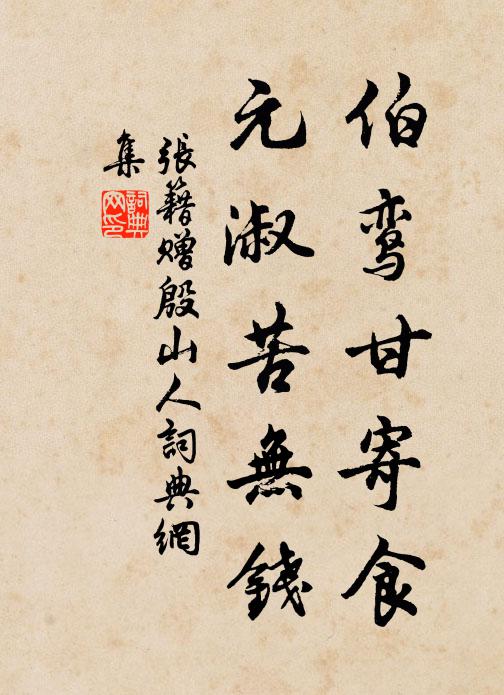 伯鸾甘寄食
元淑苦無錢
張籍贈殷山人詞典網
集
詞典网印